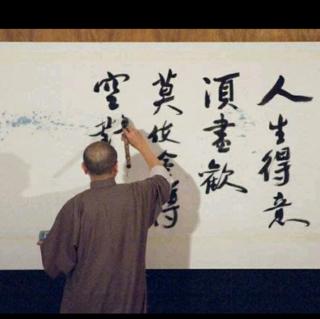 人生得意
須盡歡
莫使金樽
空